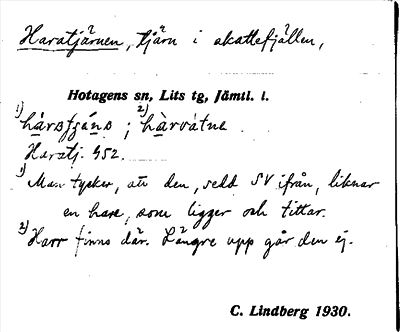 Haratjärnen, tjärn i skattefjällen,
Hotagens sn, Lits tg, Jämtl. l.
1) 2)
; 
Haratj. G52.
1) Man tycker, att den, sedd SV ifrån, liknar
en hare, som ligger och tittar.
2) Harr finns där. Längre upp går den ej.
C. Lindberg 1930.